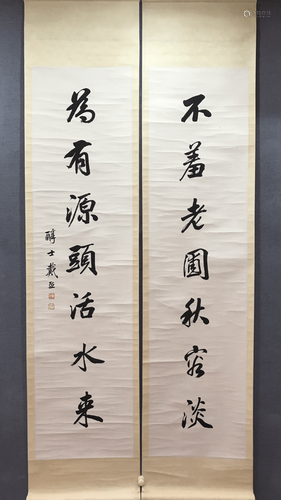 不羞老圃秋容淡
為有源頭活水来
醇士戴熙